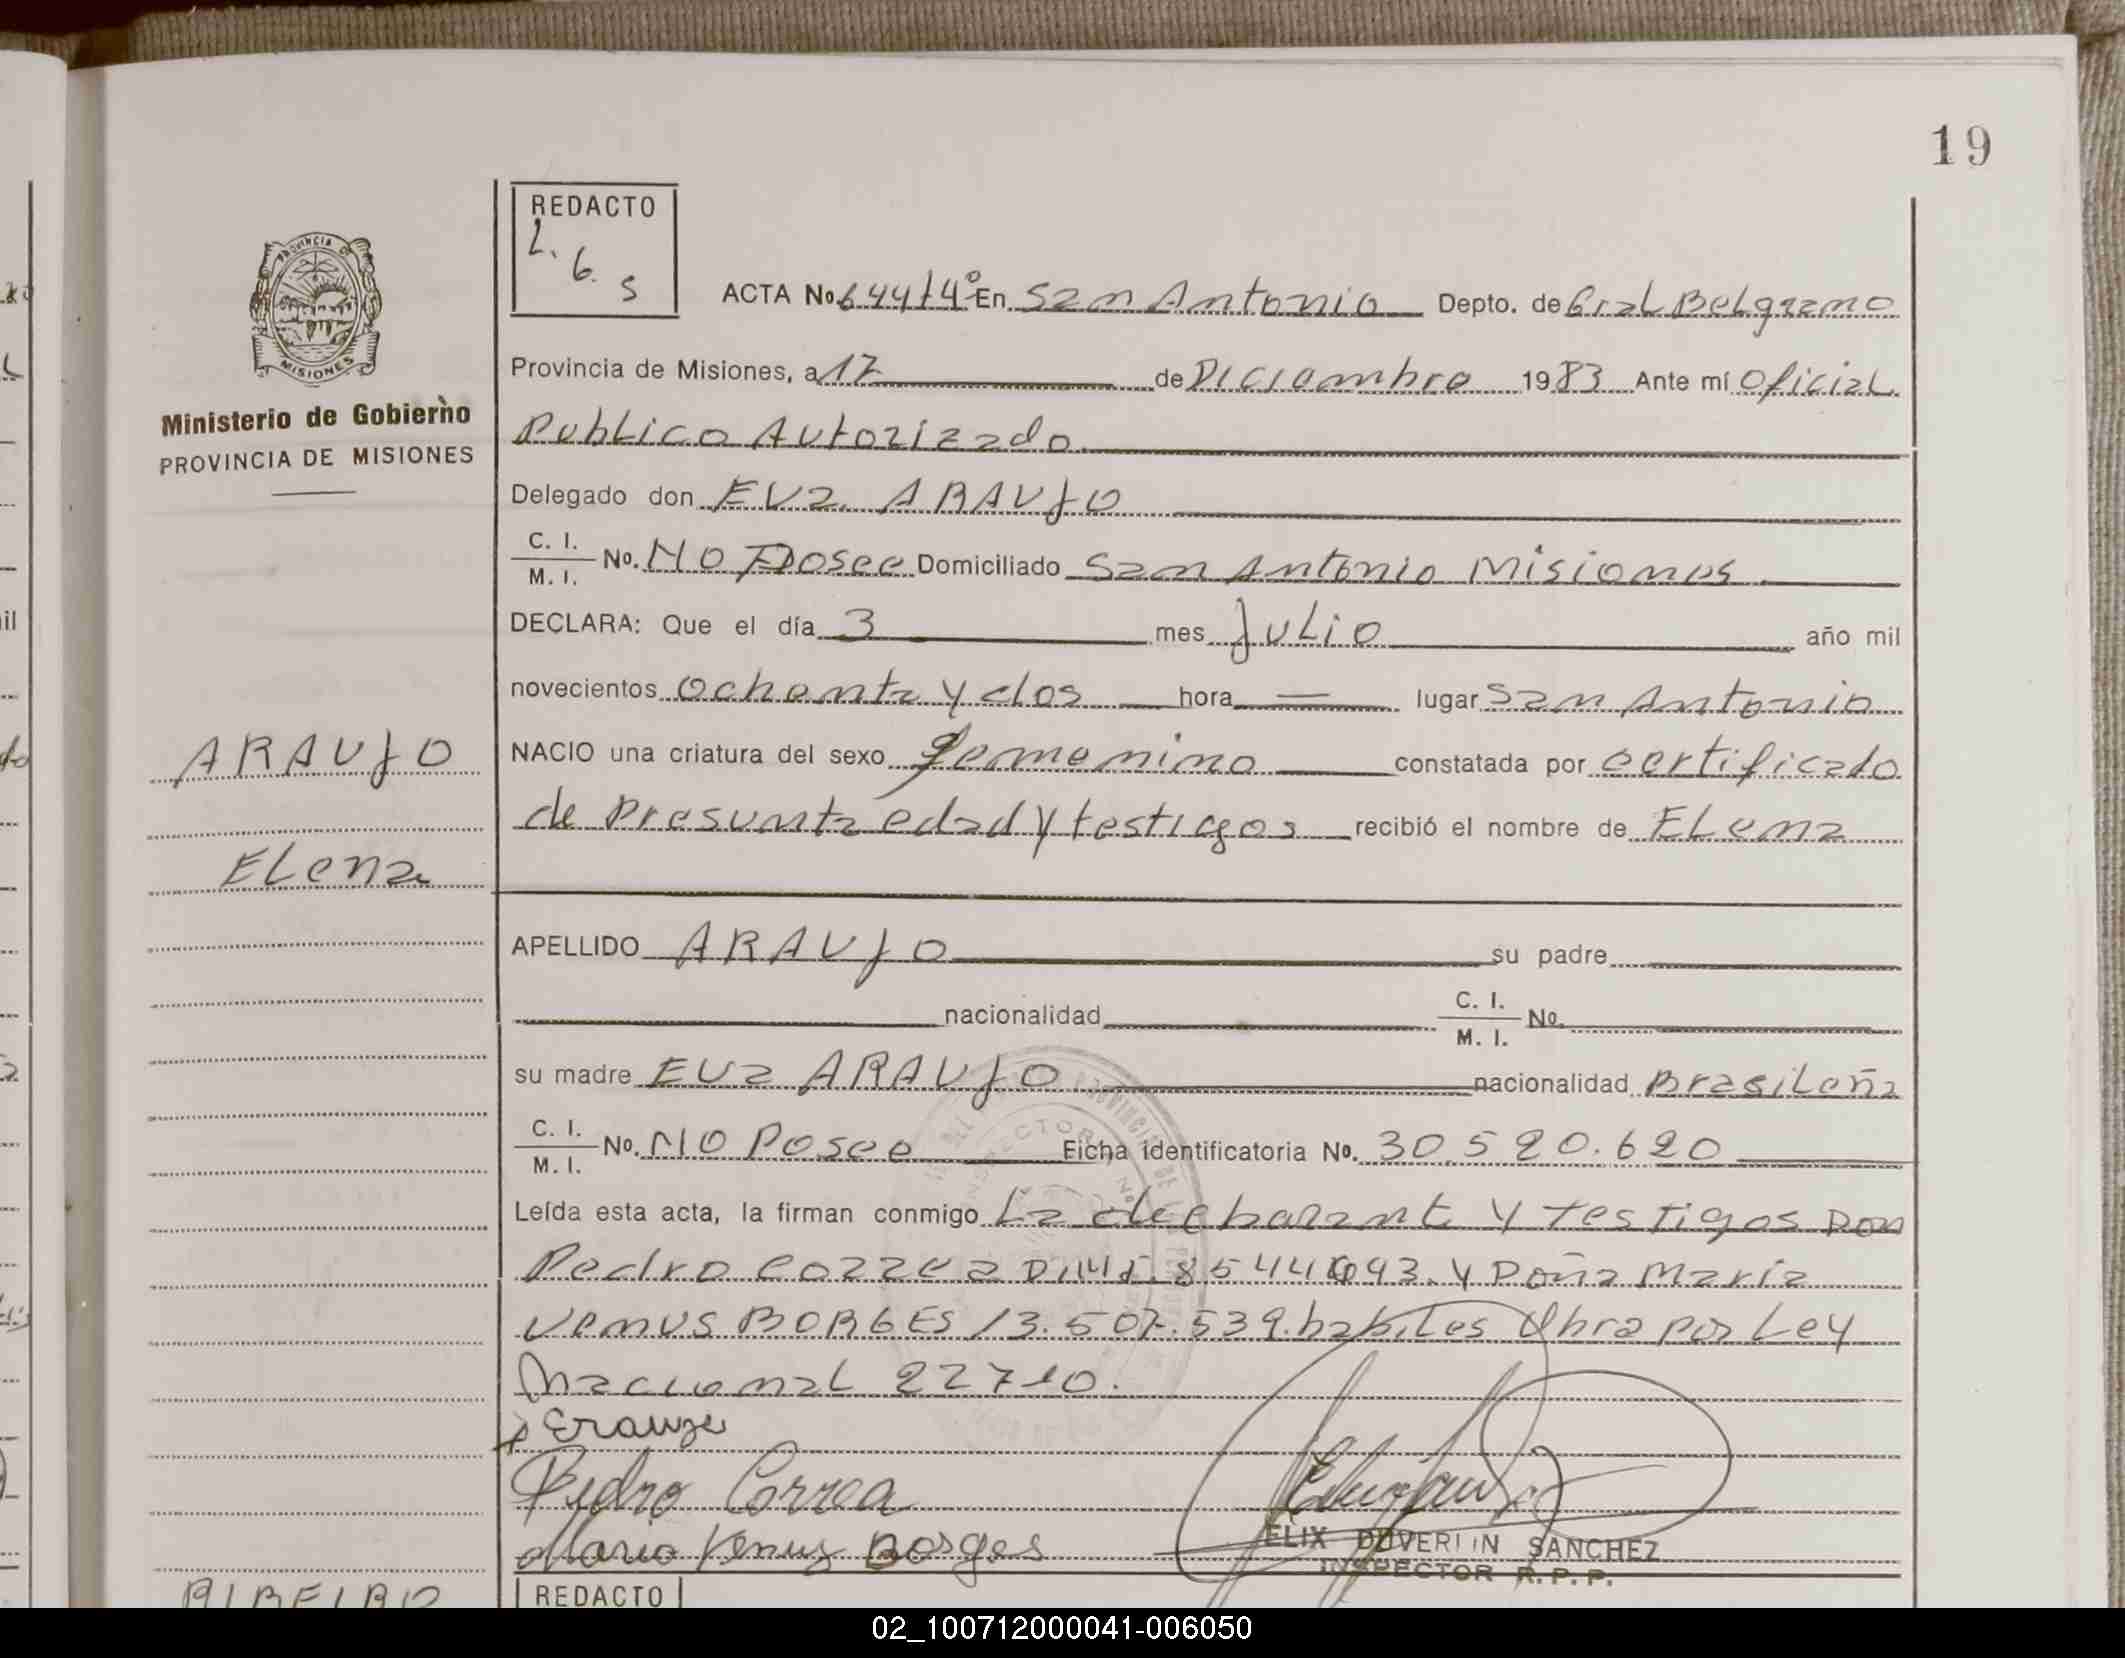 19
REDACTO
L. G. S
PROVINCIA DE
MISIONES
Ministerio de Gobierno
PROVINCIA DE MISIONES
ACTA No 644 T4º En San Antonio Depto. de Gral Belgrano
Provincia de Misiones, a 17 de Diciembre 1983 Ante mí Oficial
Publico Autorizado
Delegado don EVA ARAUJO
C. I.
M. I. No. No Posee Domiciliado San Antonio Misiones
DECLARA: Que el día 3 mes Julio año mil
novecientos ochenta y dos hora — lugar San Antonio
NACIO una criatura del sexo femenino constatada por certificado
de Presunta edad y testigos recibió el nombre de ELena
ARAUJO
ELena
APELLIDO ARAUJO su padre
nacionalidad C. I.
M. I. No.
su madre EVA ARAUJO nacionalidad Brasileña
C. I.
M. I. No. No Posee Ficha identificatoria No. 30.520.620
Leída esta acta, la firman conmigo La declarante y testigos Don
Pedro Correa D.M.I. y Doña María
Venus BORGES 13.507.539. habiles Obra por Ley
Nacional 22710.
Pedro Correa
Maria Venus Borges
FELIX DUVERLIN SANCHEZ
INSPECTOR R. P. P.
RIBEIRO
REDACTO
02_100712000041-006050